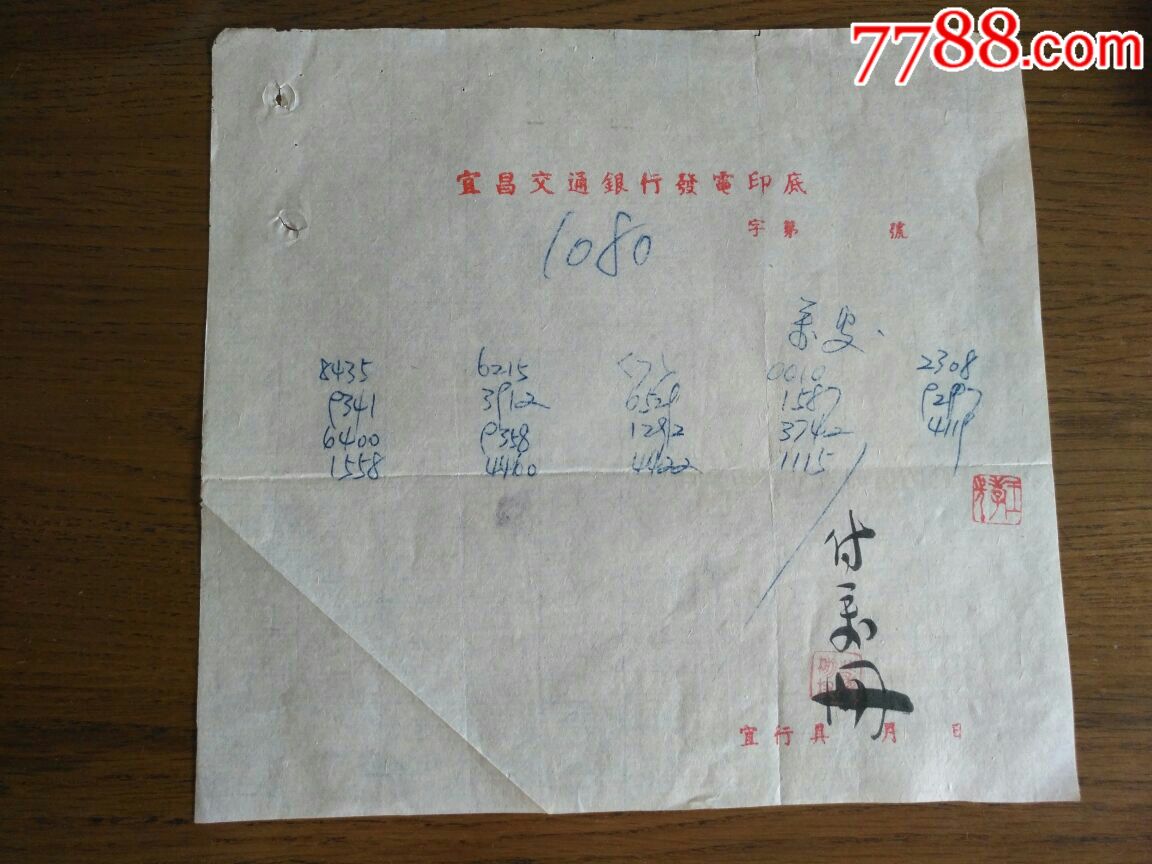 7788.com
宜昌交通銀行發電印底
字第 號
1080
萬安
8435 6215 0010 2308
9341 3912 6529 1587 9297
6400 9358 1292 3742 4119
1558 4460 4422 1115
付
宜行具 月 日